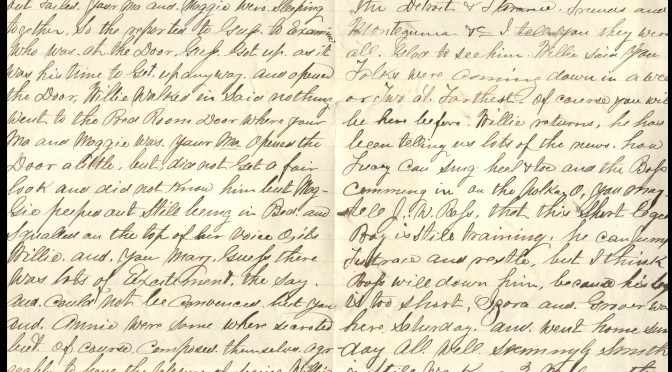 but failed. Your Ma and Maggie were sleeping
together, So she reported to Gus, to Examine
Who was at the Door. Gus, Got up. as it
was his time to Get up anyway. and opened
the Door, Willie Walked in Said nothing
went to the Bed Room Door where your
Ma and Maggie was. Your Ma. Opened the
Door a little. but. did not Get a fair
look and did not know him but Mag-
Gie peeped out Still being in Bed. and
Squalled on the top of her Voice O its
Willie. and. you May. Guess there
was lots of Excitement. the Say.
and. could not be convinced. but You
and. Annie were some where secreted
but. Of course, composed themselves. agr
the Detroit & Florance. Friends and
Montezuma &c I tell you they were
all. Glad to see him. Willie said You
Folks were coming down in a week
or Two at Farthest. of course you will
be here before. Willie returns, he has
been telling us lots of the news. how
can sing heel & toe and the Boss
comming in on the Polka O, You may
tell J. W. Ross, that this Short Leged
Boy is Stile training. he can jump
run race and restle, but I think
Boss will down him, because his legs
is too short, and Grover was
here Saturday. and. went home sun
day all well. seemingly